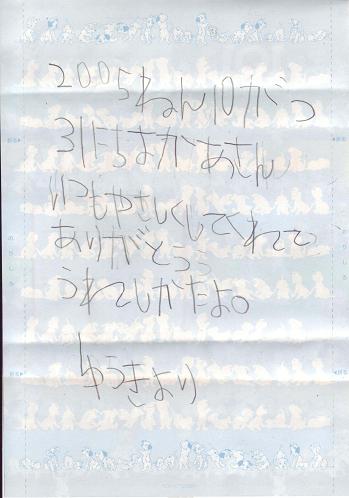 2005ねん10がつ
31にちおかあさん
いつもやさしくしてくれてて
ありがとう
うれてしかたよ。
ゆうきより